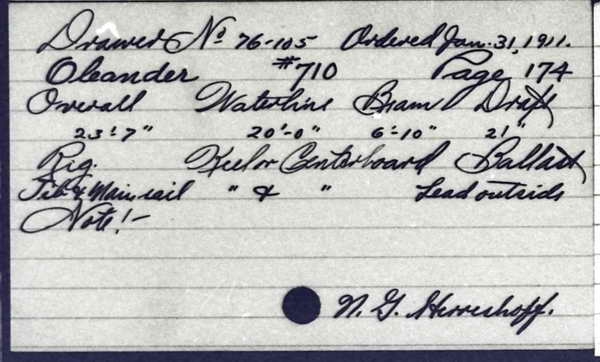 Drawer No 76-105 Ordered Jan. 31, 1911.
Oleander #710 Page 174
Overall Waterline Beam Draft
23'-7" 20'-0" 6'-10" 21"
Rig. Keel or Centerboard Ballast
Jib & Mainsail " & " Lead outside
Note:-
N. G. Herreshoff.